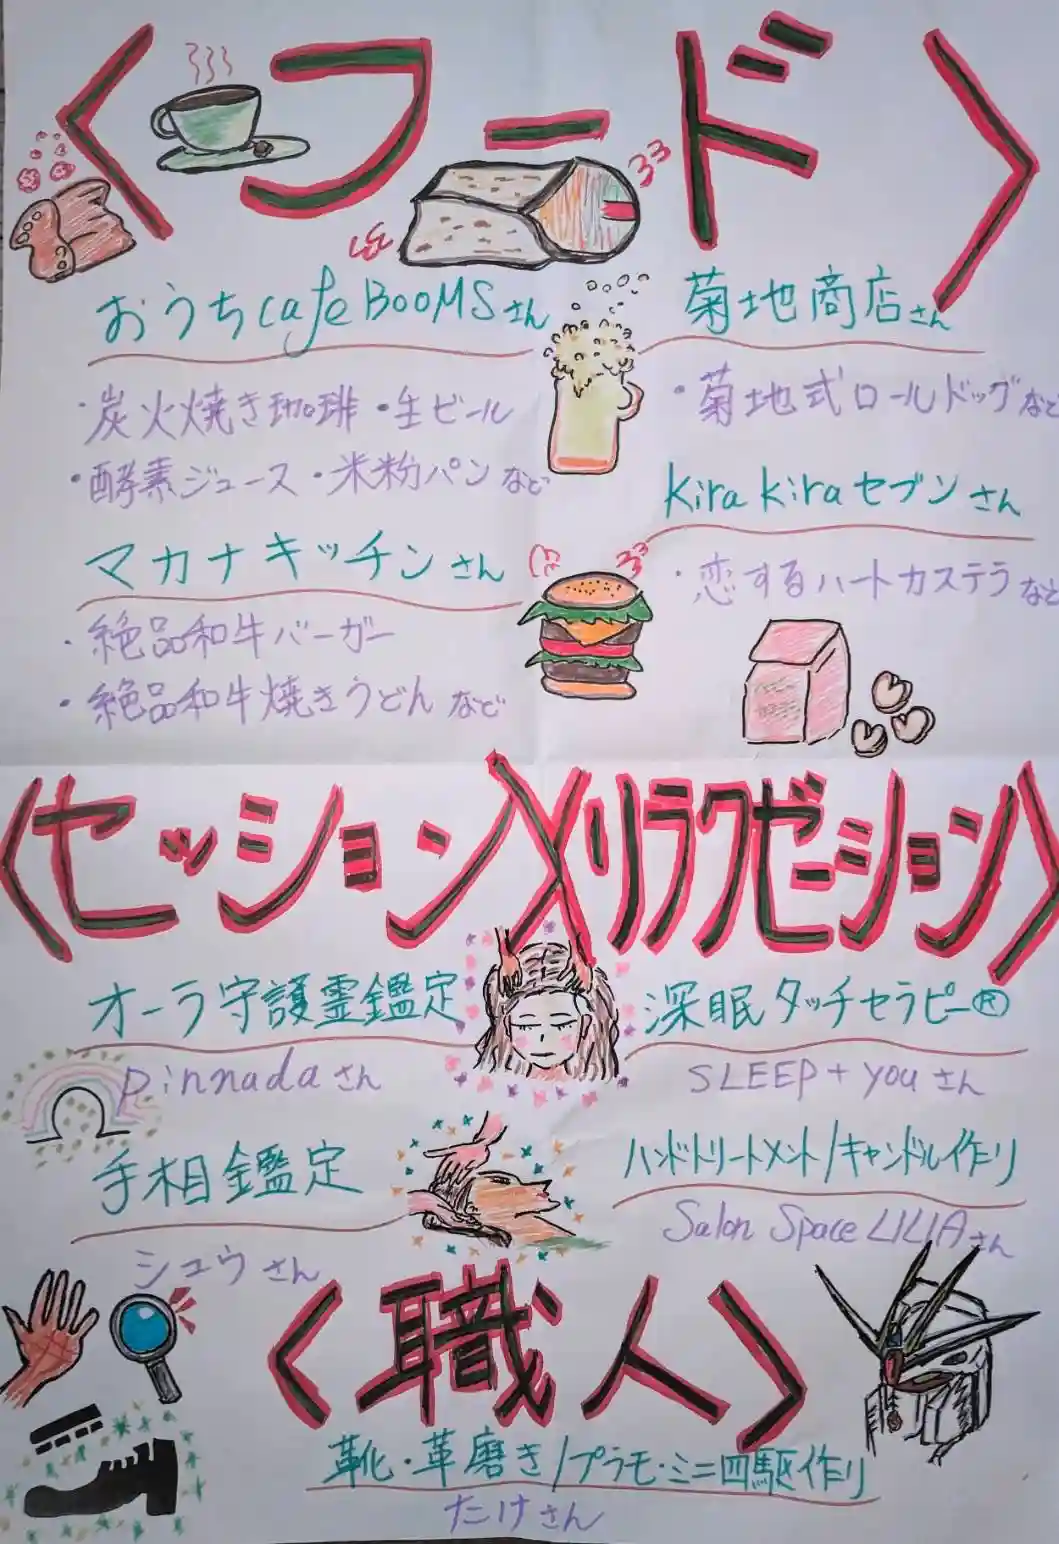 〈フード〉
おうちcafe BOOMSさん
・炭火焼き珈琲・生ビール
・酵素ジュース・米粉パンなど
マカナキッチンさん
・絶品和牛バーガー
・絶品和牛焼きうどんなど
菊地商店さん
・菊地式ロールドッグなど
kira kiraセブンさん
・恋するハートカステラなど
〈セッション〉〈リラクゼーション〉
オーラ守護霊鑑定
pinnadaさん
手相鑑定
シュウさん
深眠タッチセラピー®
SLEEP+youさん
ハンドトリートメント/キャンドル作り
Salon Space LILIAさん
〈職人〉
靴・革磨き/プラモ・ミニ四駆作り
たけさん